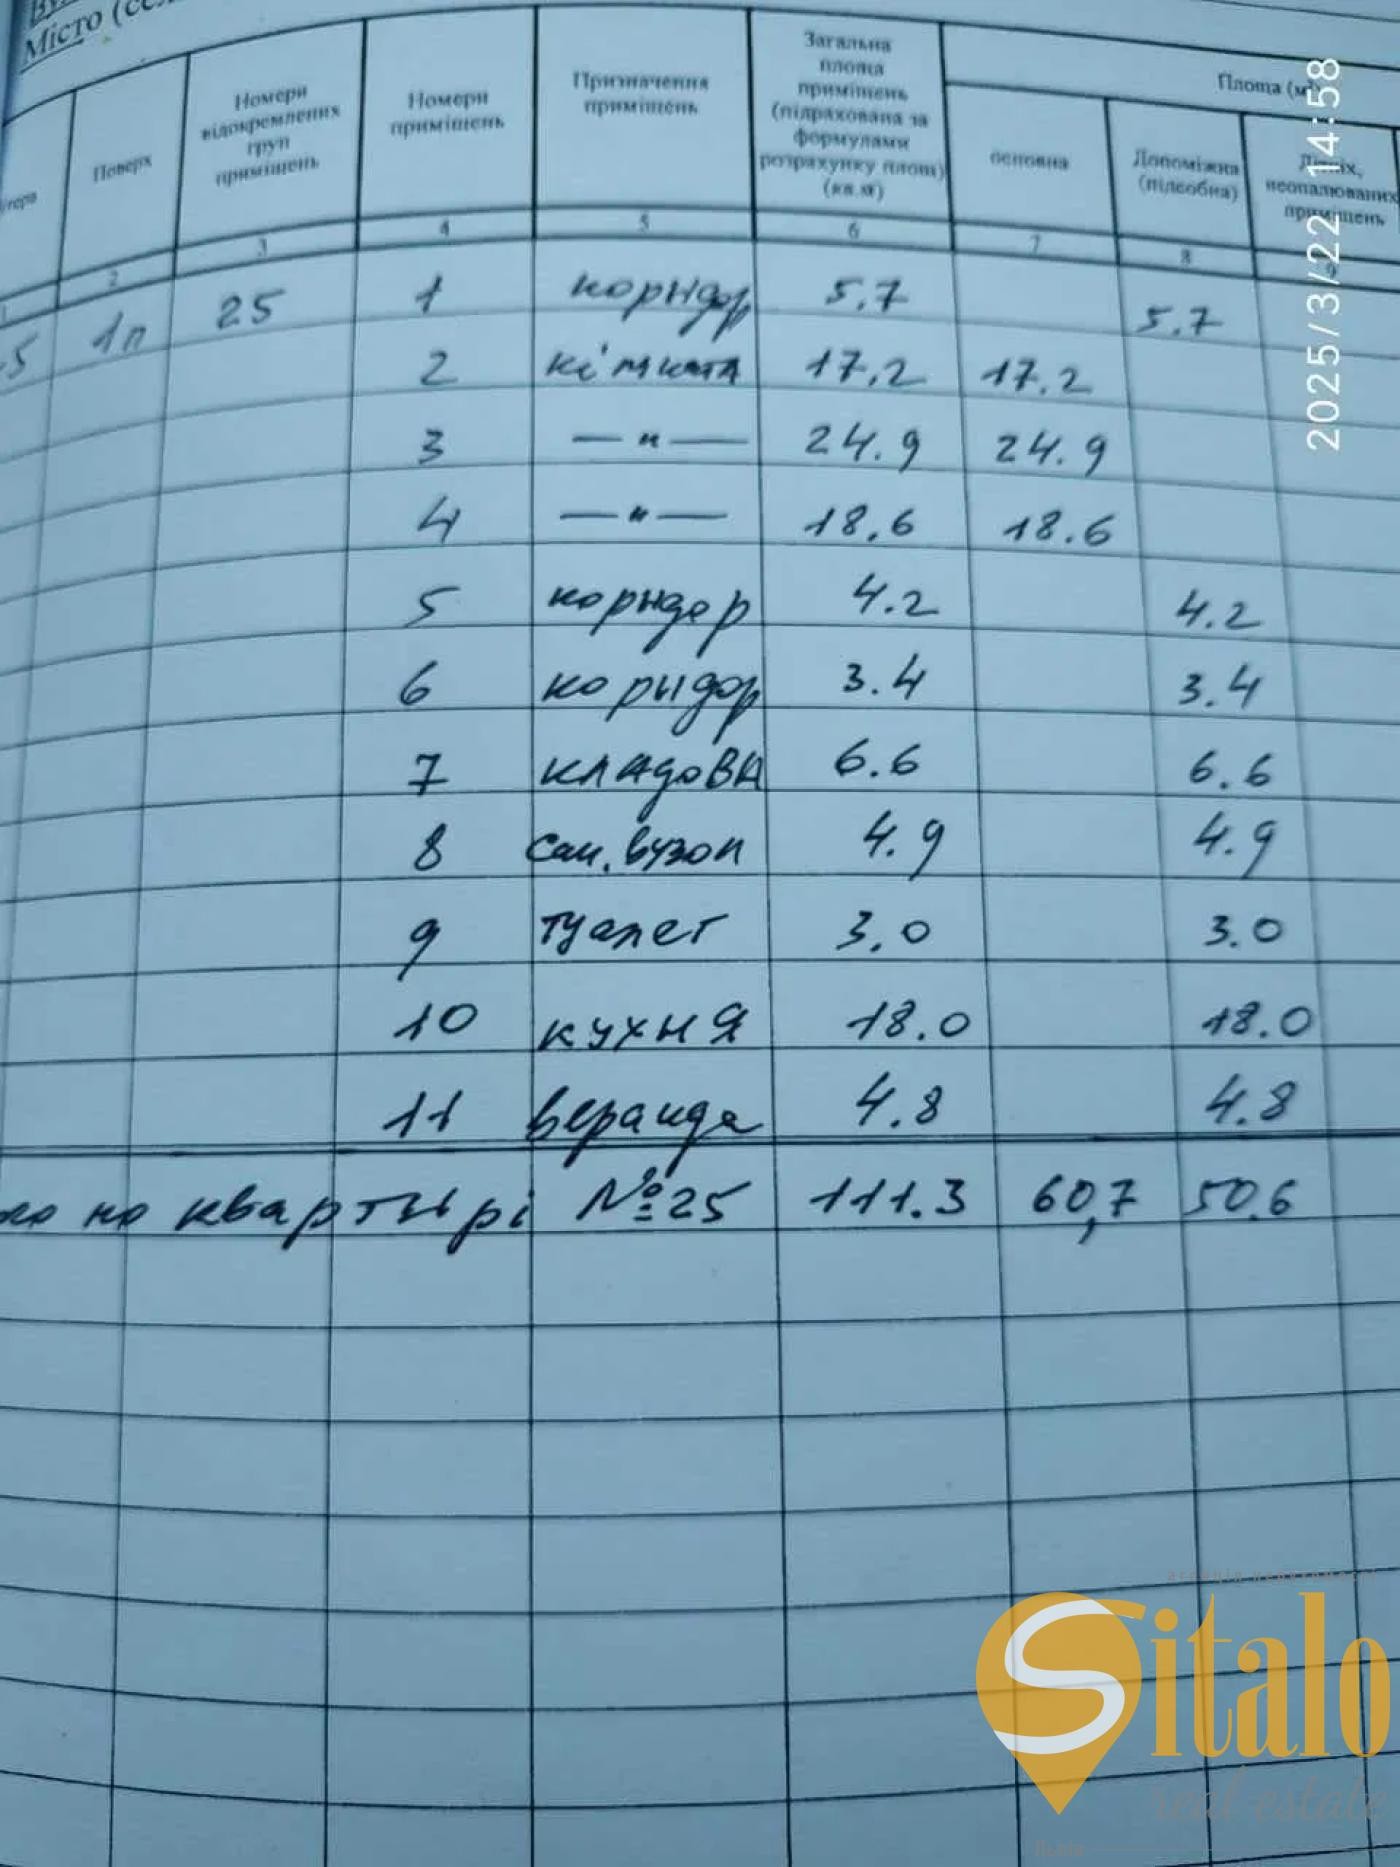 Місто
Поверх
Номери
відокремлених
груп
приміщень
Номери
приміщень
Призначення
приміщень
Загальна
площа
приміщень
(підрахована за
формулами
розрахунку площ)
(кв.м)
Площа
основна
Допоміжна
(підсобна)
неопалюваних
приміщень
2 3 4 5 6 7 8
1п 25 1 коридор 5.7 5.7
2 кімната 17.2 17.2
3 — " — 24.9 24.9
4 — " — 18.6 18.6
5 коридор 4.2 4.2
6 коридор 3.4 3.4
7 кладова 6.6 6.6
8 сан.вузол 4.9 4.9
9 туалет 3.0 3.0
10 кухня 18.0 18.0
11 веранда 4.8 4.8
по квартирі №25 111.3 60,7 50.6
2025/3/22 14:58
агенція нерухомості
Sitalo
real estate
Львів